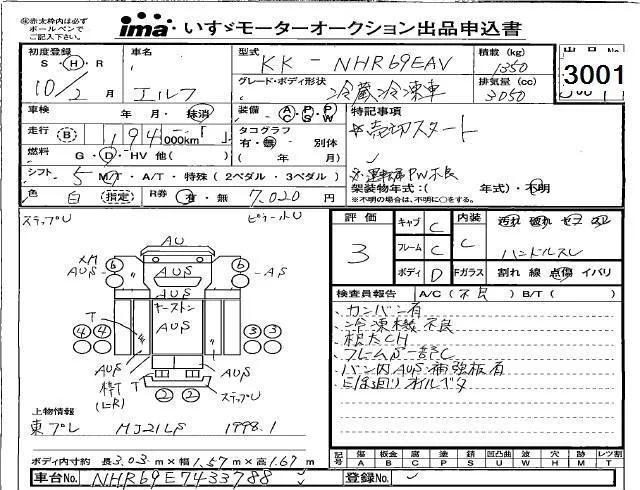 ※赤太枠内は必ず
ボールペンで
ご記入下さい。
ima いすゞモーターオークション出品申込書
初度登録 S・H・R 10/2 月
車名 エルフ
型式 KK-NHR69EAV
積載(kg) 1350
出品No. 3001
グレード・ボディ形状 冷蔵冷凍車
排気量(cc) 3050
車検 年 月・抹消
装備 AC PS PW
特記事項
※売切スタート
走行 B 194 000km「 」
タコグラフ 有・無 ・別体
( 年 月)
燃料 G・D・HV 他( )
※運転席PW不良
シフト 5 M/T・A/T・特殊(2ペダル・3ペダル)
架装物年式:( 年式)・不明
※不明の場合は、不明に○をする。
色 白 (指定) R券 有・無 7,020 円
ステップU
評価 3
キャブ C
内装 C
ハンドルスレ
フレーム C
ボディ D
Fガラス 割れ 線 点傷 イバリ
AU
AUS
AS
キーストン
AUS
T
AUS
T
ステップU
(L-R)
6 6 4 4 3 3 2 2
検査員報告 A/C(不良) B/T( )
カンバン有
冷凍機不良
フレームS一部C
バン内AUS補強板有
上物情報
東プレ MJ21LS 1998.1
ボディ内寸約 長3.03m×幅1.57m×高1.67m
記号 傷A 板金B 腐C 塗P 錆S 凹凸曲U 波W 穴H 跡M レツ割T
車台No. NHR69E7433788
登録No.